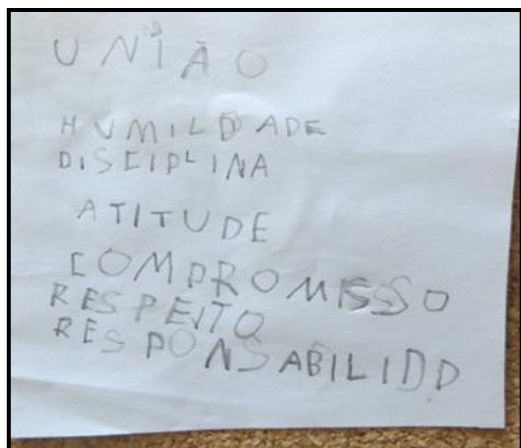 UNIÃO
HUMILDADE
DISCIPLINA
ATITUDE
COMPROMISSO
RESPEITO
RESPONSABILIDD